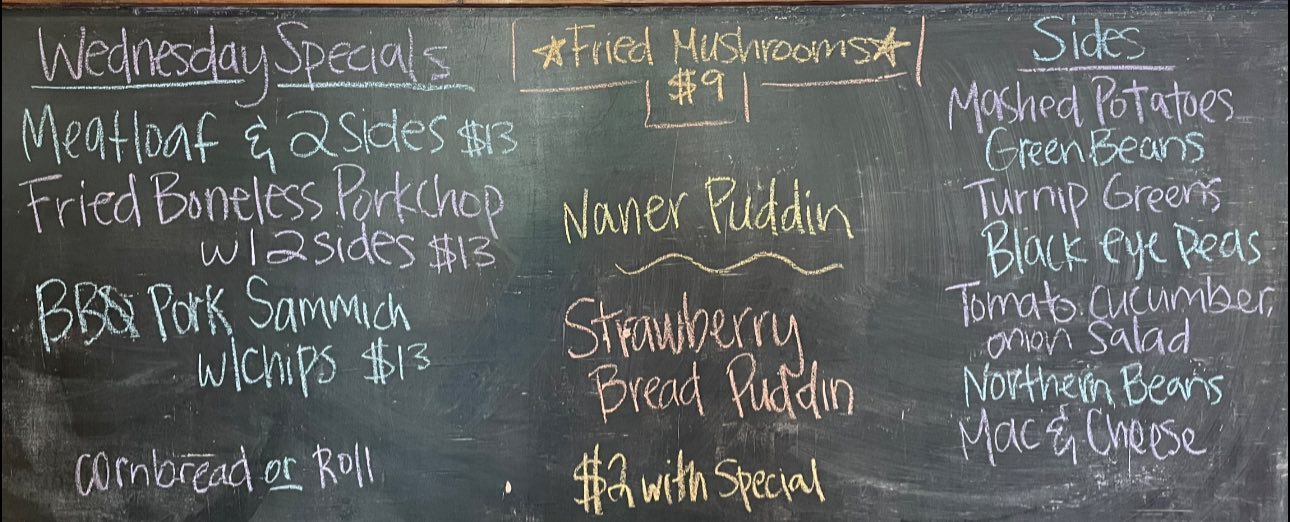 Wednesday Specials
Meatloaf & 2 Sides $13
Fried Boneless Porkchop
w/ 2 sides $13
BBQ Pork Sammich
w/chips $13
cornbread or Roll
★Fried Mushrooms★
$9
Naner Puddin
Strawberry
Bread Puddin
$2 with Special
Sides
Mashed Potatoes
Green Beans
Turnip Greens
Black eye Peas
Tomato, cucumber,
onion Salad
Northern Beans
Mac & Cheese